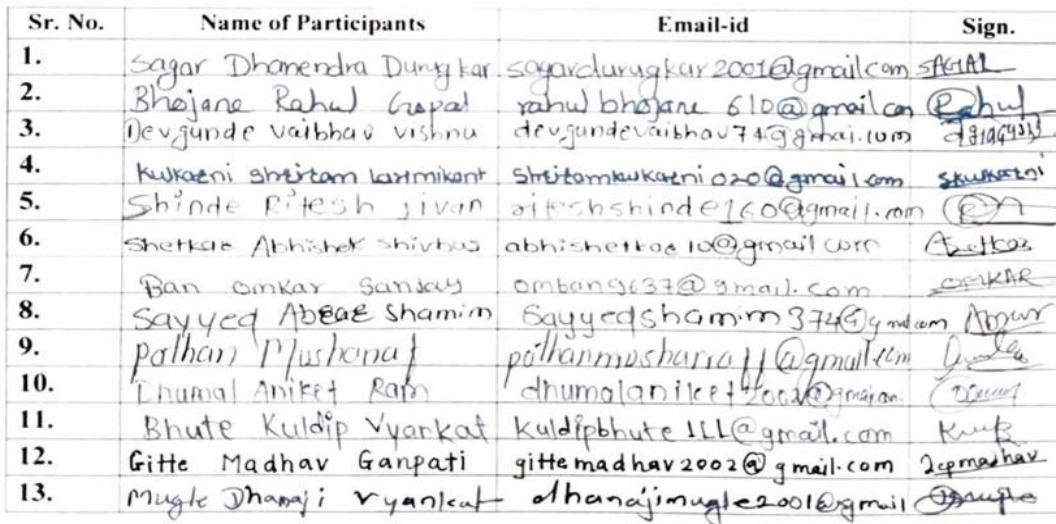 Sr. No. Name of Participants Email-id Sign.
1. Sagar Dhanendra Durugkar sagardurugkar2001@gmail.com SAGAR
2. Bhojane Rahul Gopal rahulbhojane610@gmail.com Rahul
3. Devgunde vaibhav vishnu
4. kulkarni shritam laxmikant shritamkulkarni020@gmail.com skulkarni
5. Shinde Ritesh jivan riteshshinde160@gmail.com
6. Shetkar Abhishek shivraj abhishetkar10@gmail.com
7. Ban omkar Sanjay omban9637@gmail.com OMKAR
8. Sayyed Abrar Shamim Sayyedshamim374@gmail.com Abrar
9. pathan
10. Dhumal Aniket Ram
11. Bhute Kuldip Vyankat kuldipbhute111@gmail.com
12. Gitte Madhav Ganpati gittemadhav2002@gmail.com
13. Mugle Dhanaji vyankat dhanajimugle2001@gmail